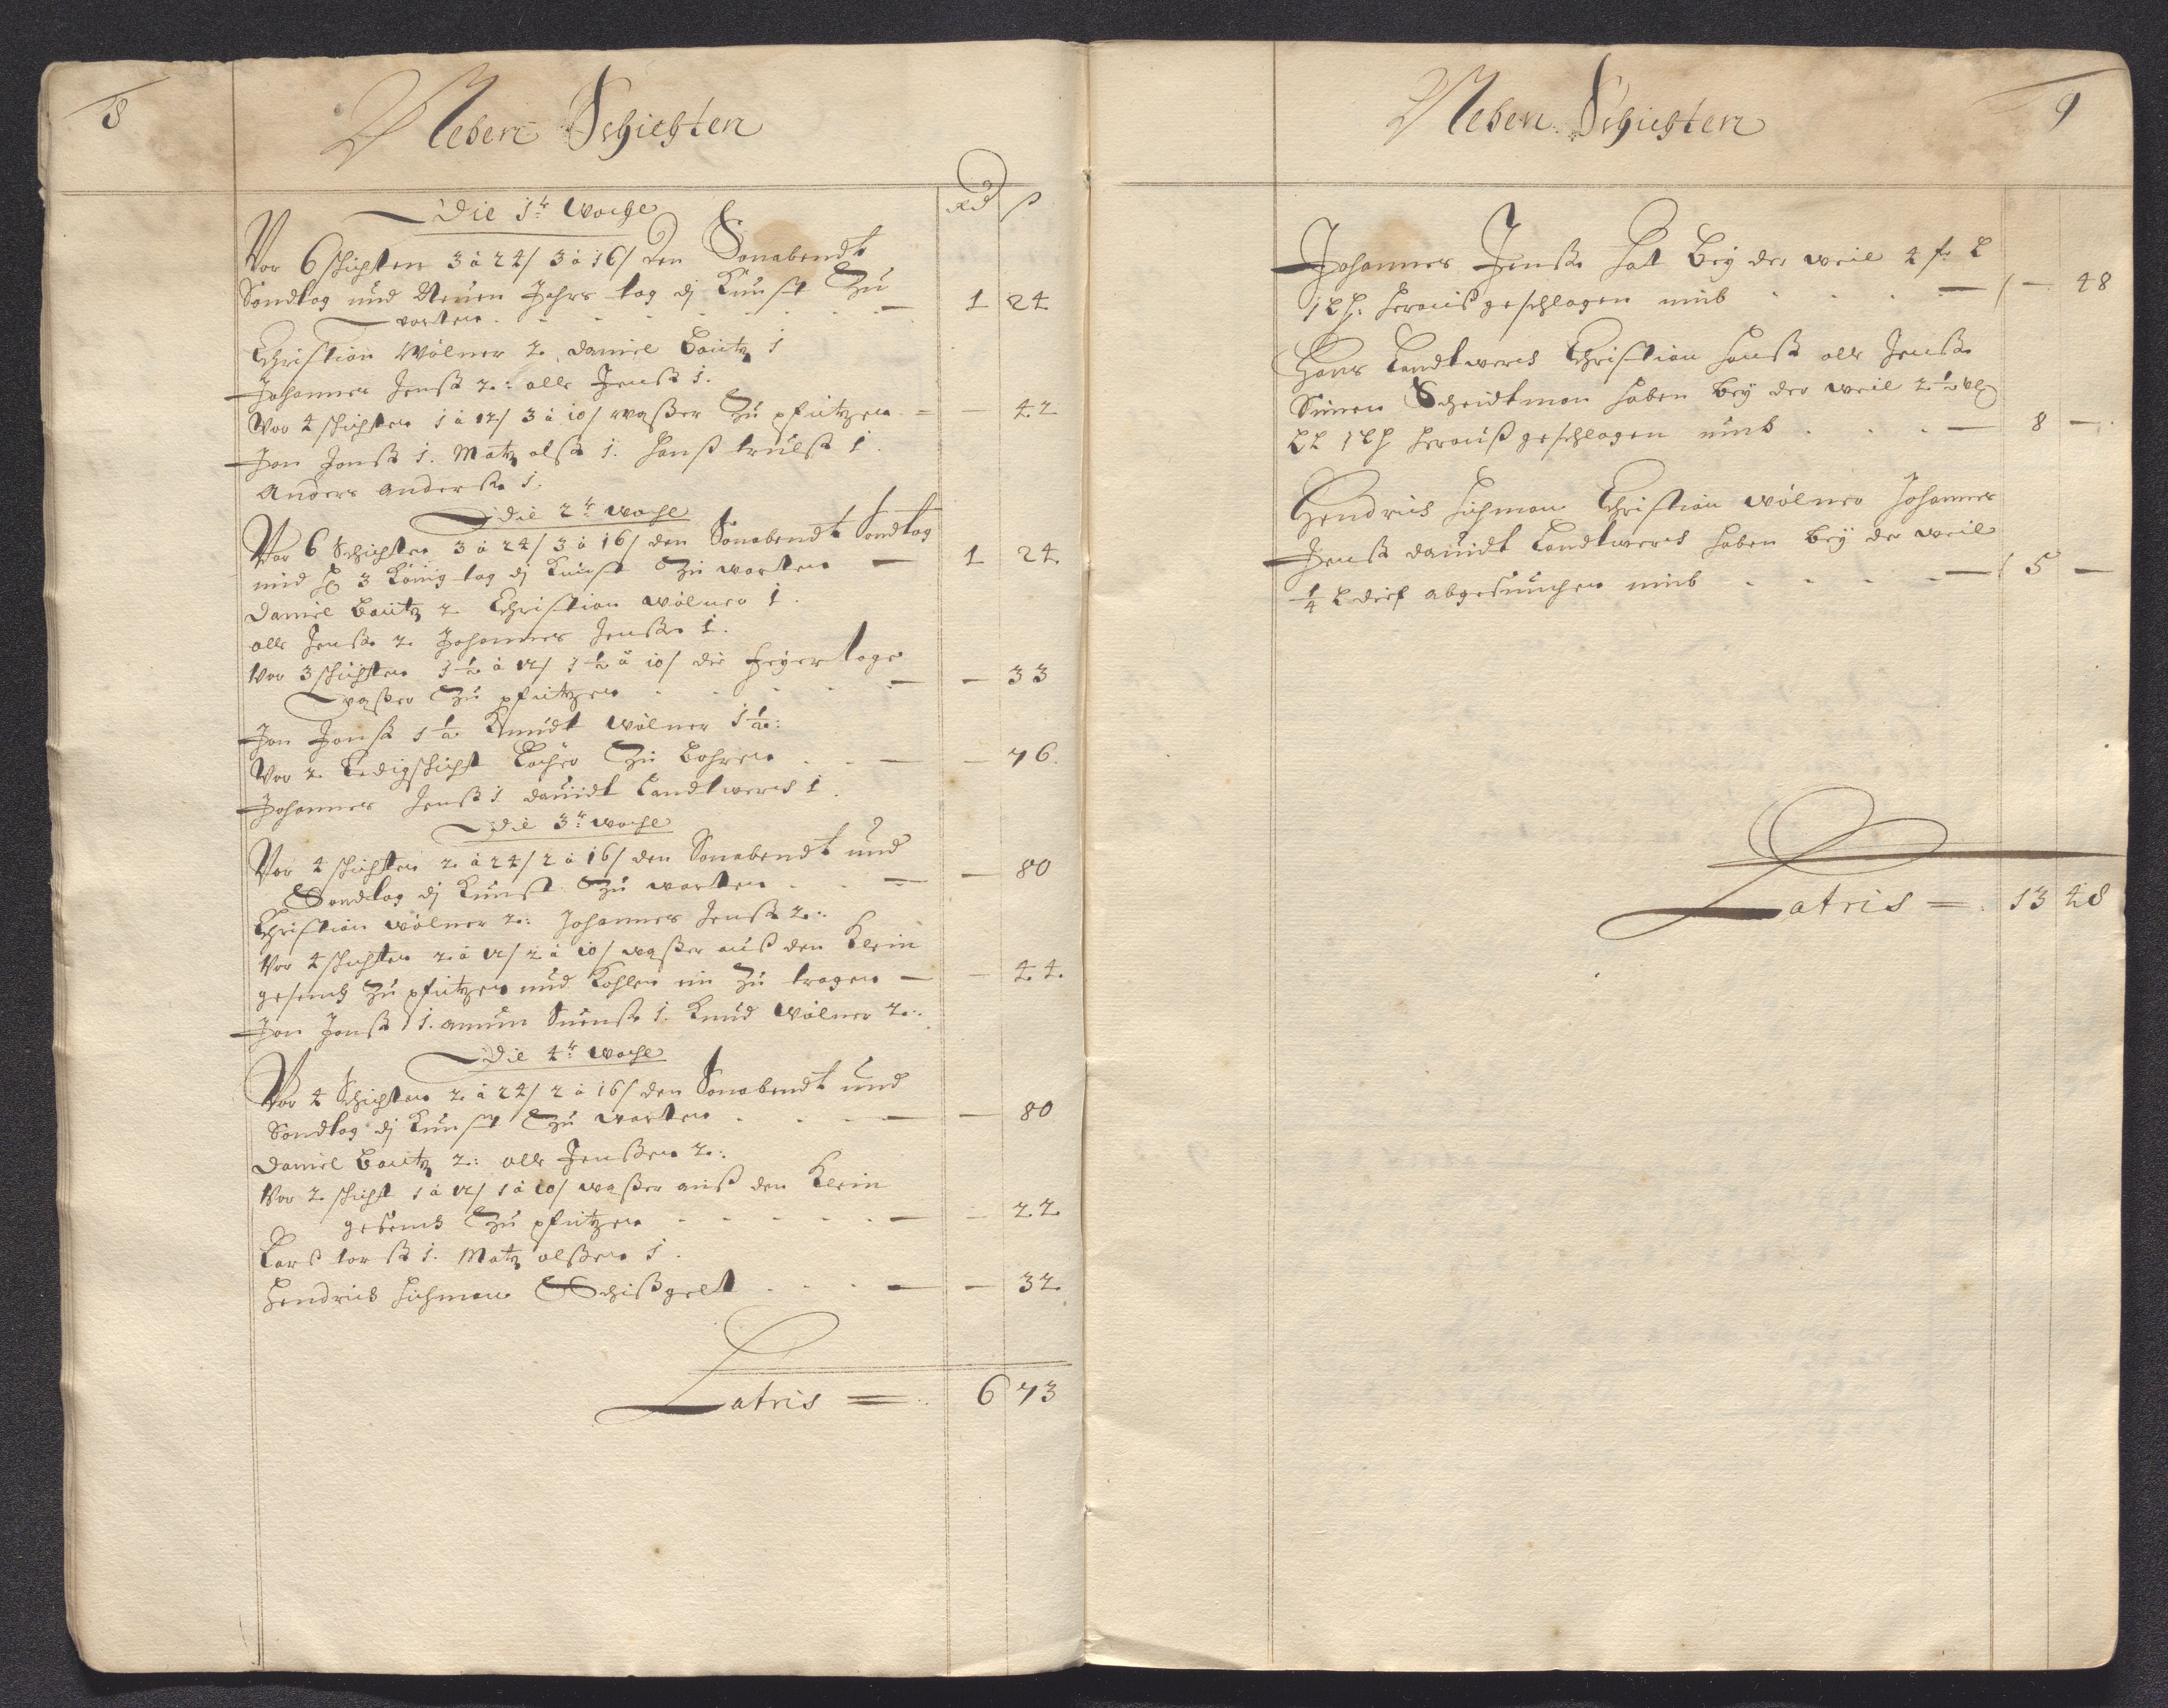 8
Neben Schichten
Die 1te Woche
Rd ß
Vor 6 schichten 3 à 24/ 3 à 16/ den Sonabendt
Sondtag und Neuen Jahrs tag dj Kunst Zu
warten . . . . . . . — 1 24
Christian Wölner 2. Daniel Bautz 1
Johannes Jenß 2.: olle Jenß 1.
Vor 4 schichten 1 à 12/ 3 à 10/ waßer Zu pfützen = — 42
Jon Jonß 1. Matz olß 1. Hanß trulß 1.
Anders Anderß 1.
Die 2te woche
Vor 6 Schichten 3 à 24/ 3 à 16/ den Sonabendt Sondtag
und H 3 König tag dj Kunst Zu warten — 1 24
Daniel Bautz 2. Christian wölner 1.
olle Jenß 2. Johannes Jenß 1.
Vor 3 schichten 1½ à 12/ 1½ à 10/ die Feyertage
waßer Zu pfützen . . . . — — 33
Jon Jonß 1½ Knudt Wölner 1½:
Vor 2 Ledigschicht Löcher Zu bohren . . — — 76.
Johannes Jenß 1 Dauidt Landtwercs 1.
Die 3te woche
Vor 4 schichten 2. à 24/ 2 à 16/ den Sonabendt und
Sondtag dj Kunst Zu warten . . — — 80
Christian wölner 2.: Johannes Jenß 2.:
Vor 4 schichten 2. à 12/ 2 à 10/ waßer auß den Klein
gesenck Zu pfützen und Kohlen ein Zu tragen — — 44.
Jon Jonß 1. Amun Suenß 1. Knud Wölner 2.:
Die 4te woche
Vor 4 Schichten 2. à 24/ 2 à 16/ den Sonabendt und
Sondtag dj Kunst Zu warten . . . — — 80
Daniel Bautz 2.: olle Jenßen 2.:
Vor 2. schicht 1 à 12/ 1 à 10/ waßer auß den Klein
gesenck Zu pfützen . . . . . — — 22
Lars lorß 1. Matz olßen 1.
Hendrich Lichman Schißgelt . . — — 32.
Latris = 6 73
9
Neben Schichten
Johannes Jenß hat bey der weil 4 fr. L
1 Lh: herauß geschlagen umb . . . . — — 48
Hans Landtwercs Christian Hanß olle Jenß
Simen Scheidtman haben bey der weil 2½
LL 1 Lh herauß geschlagen umb . . . — 8 —
Hendrich Lichman Christian wölner Johannes
Jenß Dauidt Landtwercs haben bey der weil
¼ L dief abgesuncken umb . . . . — 5 —
Latris = 13 48